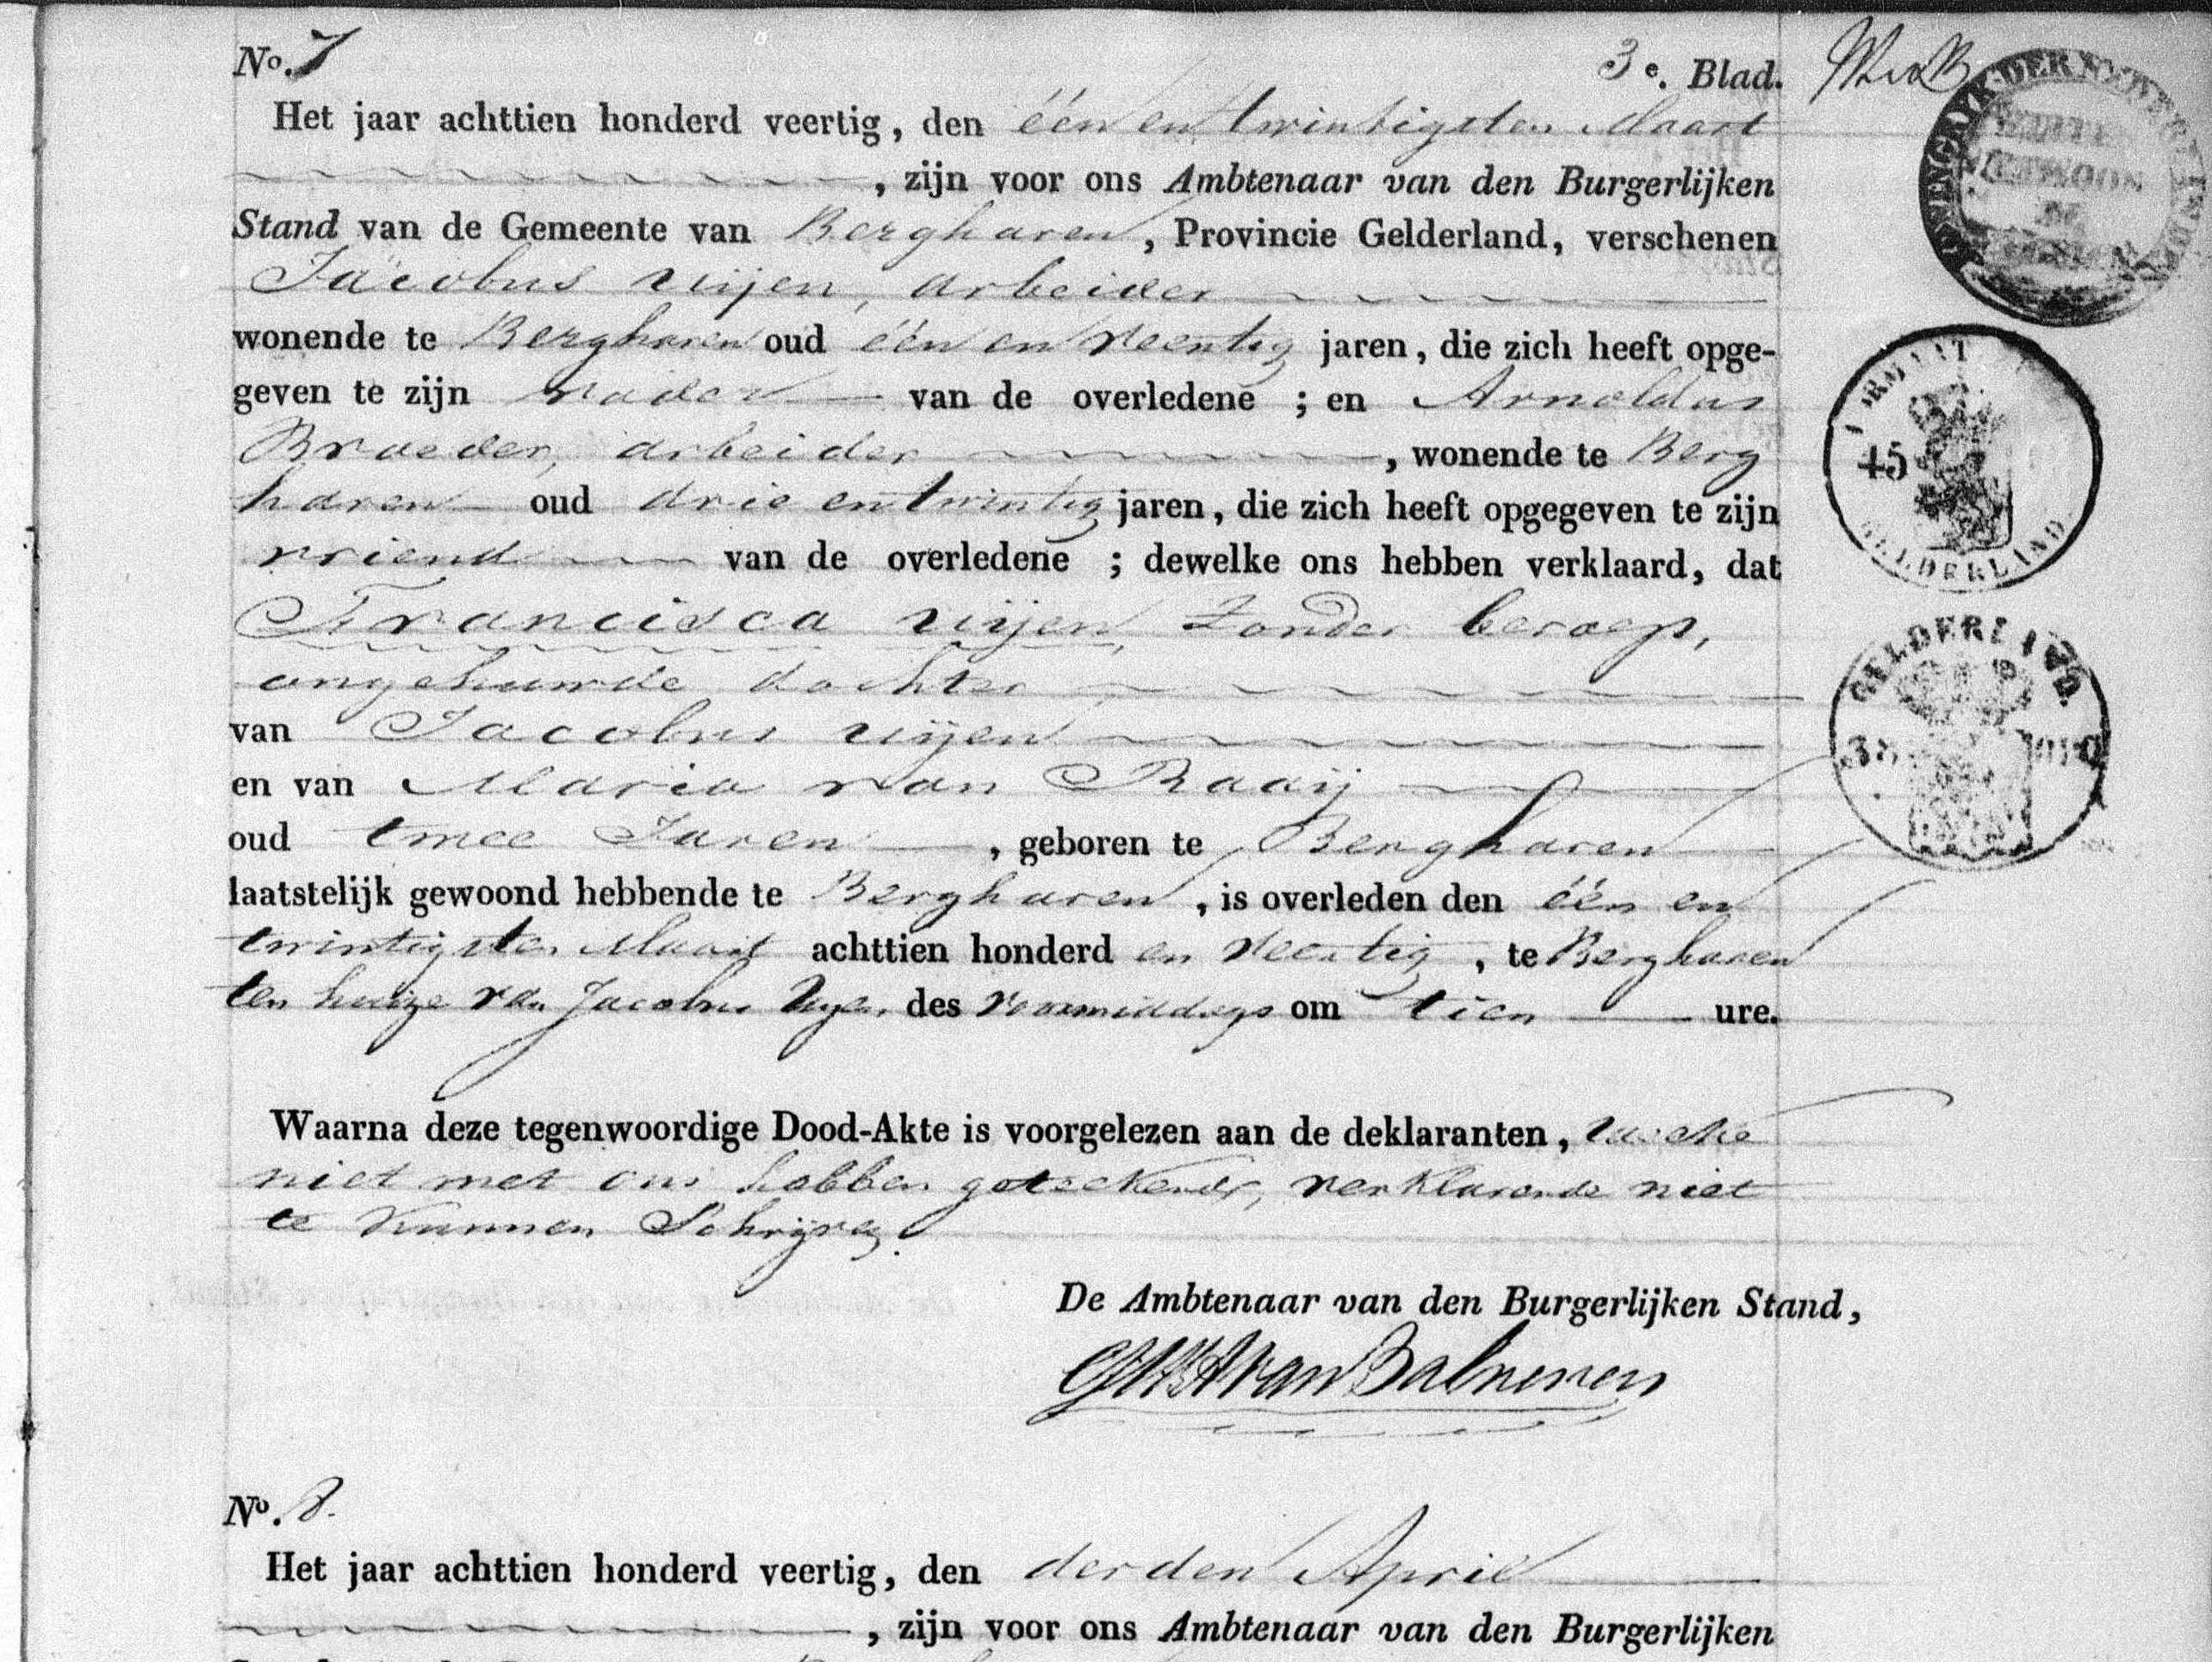 No. 7 3e. Blad.
Het jaar achttien honderd veertig, den één en twintigsten Maart
, zijn voor ons Ambtenaar van den Burgerlijken
Stand van de Gemeente van Bergharen, Provincie Gelderland, verschenen
Jacobus Uijen, arbeider
wonende te Bergharen oud één en veertig jaren, die zich heeft opge-
geven te zijn vader van de overledene ; en Arnoldus
Broeder, arbeider , wonende te Berg
haren oud drie en twintig jaren, die zich heeft opgegeven te zijn
vriend van de overledene ; dewelke ons hebben verklaard, dat
Francisca Uijen, zonder beroep,
ongehuwde dochter
van Jacobus Uijen
en van Maria van Raaij
oud twee Jaren , geboren te Bergharen
laatstelijk gewoond hebbende te Bergharen, is overleden den één en
twintigsten Maart achttien honderd en veertig, te Bergharen
ten huize van Jacobus Uijen des voormiddags om tien ure.
Waarna deze tegenwoordige Dood-Akte is voorgelezen aan de deklaranten, welke
niet met ons hebben geteekend, verklarende niet
te kunnen Schrijven.
De Ambtenaar van den Burgerlijken Stand,
van Balveren
No. 8.
Het jaar achttien honderd veertig, den derden April
, zijn voor ons Ambtenaar van den Burgerlijken
45
GELDERLAND
GELDERLAND
38